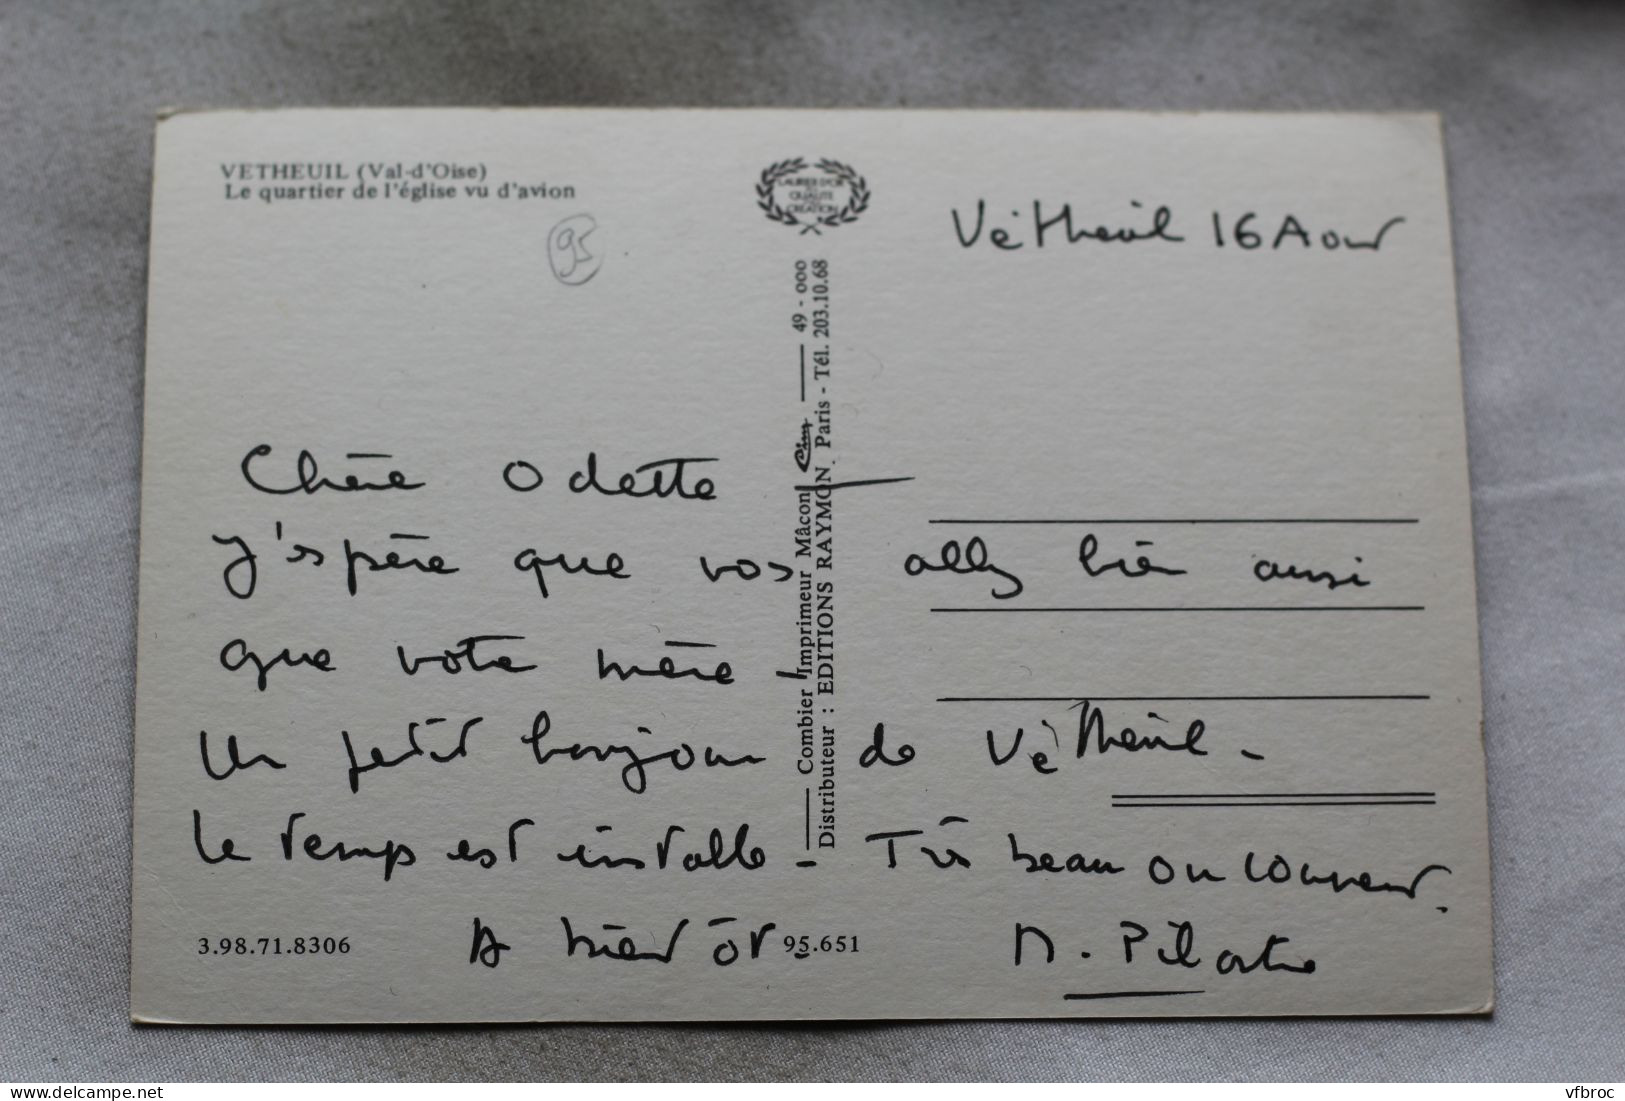 VETHEUIL (Val-d'Oise)
Le quartier de l'église vu d'avion
95
LAURIER D'OR
QUALITE
CREATION
Vétheuil 16 Aout
Combier Imprimeur Mâcon Cim 49 - 000
Distributeur : EDITIONS RAYMON. Paris - Tél. 203.10.68
Chère Odette
J'espère que vos allez bien aussi
que votre mère -
Un petit bonjour de Vétheuil -
Le temps est installe - Très beau ou couvert.
A bientôt
M. Pilastre
3.98.71.8306
95.651
delcampe.net
vfbroc